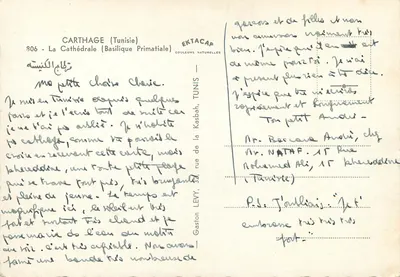 CARTHAGE (Tunisie)
806 - La Cathédrale (Basilique Primatiale)
EKTACAP
COULEURS NATURELLES
Gaston LEVY, 22, rue de la Kasbah, TUNIS
Ma petite Chaise Chérie.
Je suis en Tunisie depuis quelques
jours et je t'écris tout de suite car
je ne t'ai pas oublié. J'habite
pas Carthage, comme tu pourrais le
croire en recevant cette carte, mais
Kheredine, une toute petite plage
qui se trouve tout près, très bruyante
et pleine de jeunes. Le temps est
magnifique ici, le soleil est très
fort et surtout très chaud et je
passe ma vie dans l'eau du matin
au soir. C'est très agréable. Nous avons
formé une bande très nombreuse de
garçons et de filles et nous
nous amusons vraiment très
bien. J'espère qu'il en est
de même pour toi. Je n'ai
à présent plus rien à te dire.
J'espère que tu m'écriras
rapidement et longuement
Ton petit André
Mr. André, chez
Mr. NATAF, 15 Rue
Mohamed Ali, 15 Khereddine
(Tunisie)
P.S. J'oubliais: "Je t'
embrasse très très très
fort."